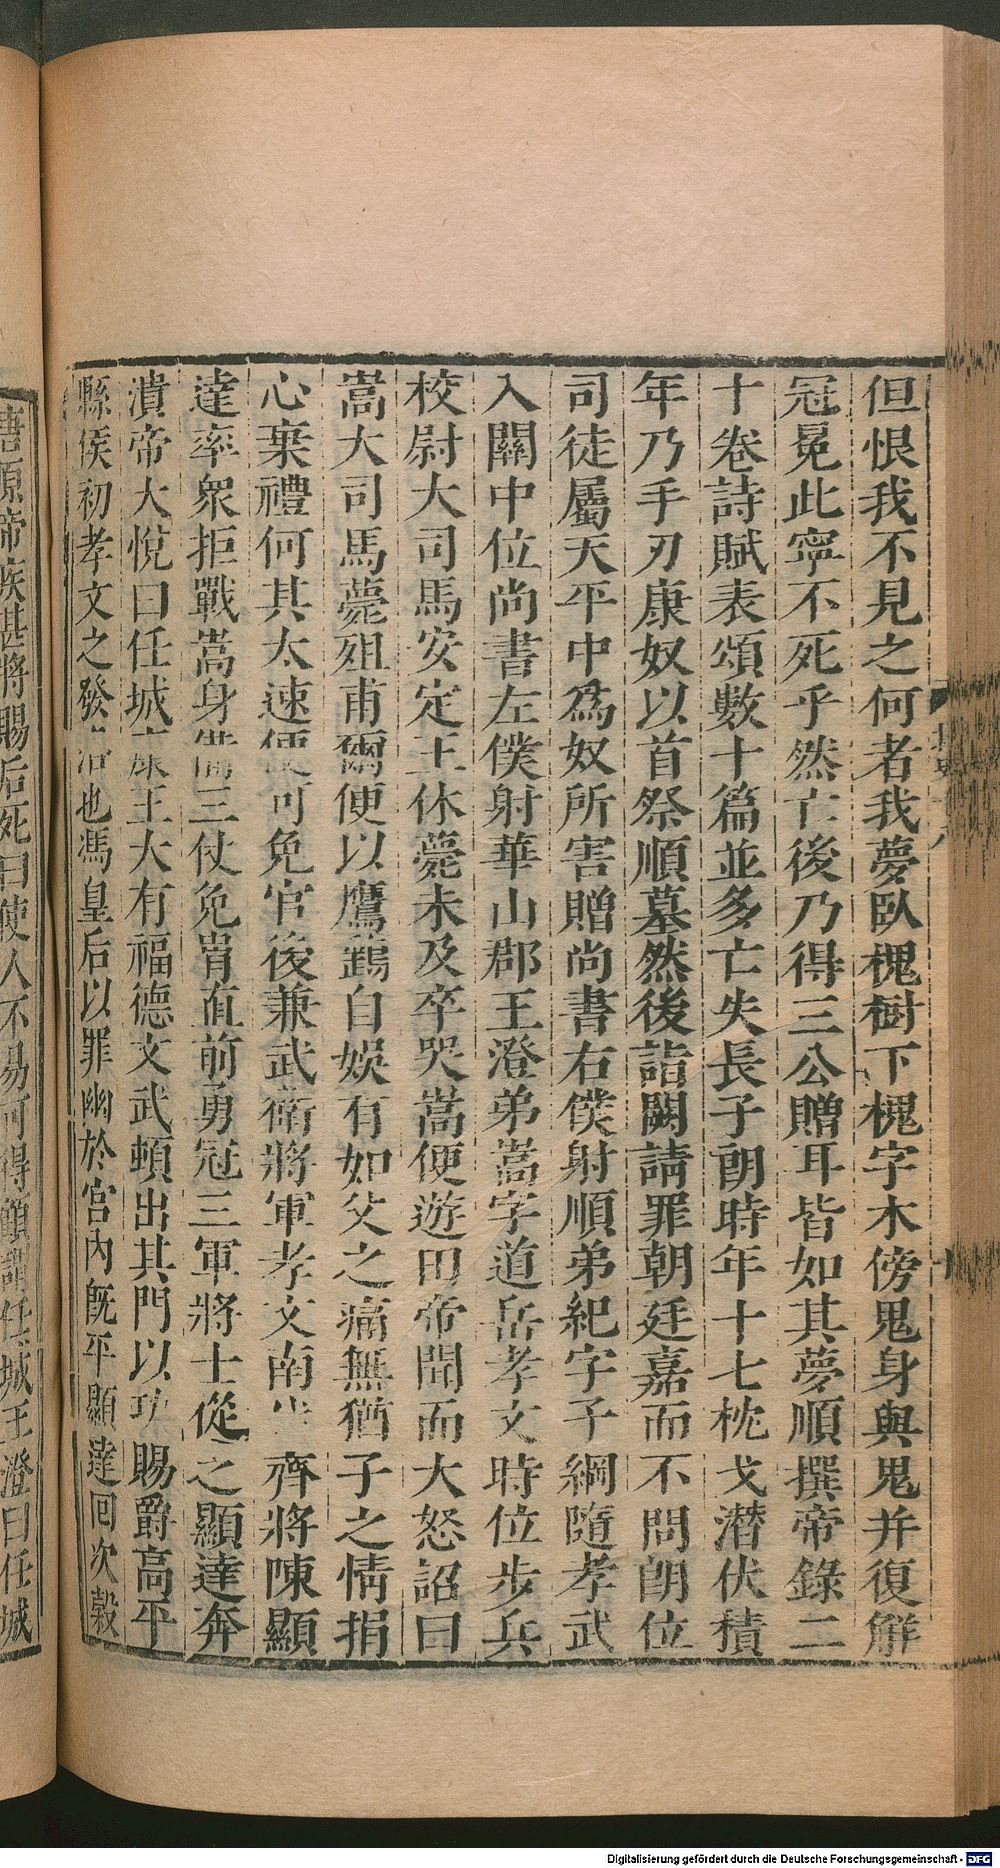 但恨我不見之何者我夢臥槐樹下槐字木傍鬼身與鬼并復解
冠冕此寧不死乎然亡後乃得三公贈耳皆如其夢順撰帝錄二
十卷詩賦表頌數十篇並多亡失長子朗時年十七枕戈潛伏積
年乃手刃康奴以首祭順墓然後詣闕請罪朝廷嘉而不問朗位
司徒屬天平中為奴所害贈尚書右僕射順弟紀字子綱隨孝武
入關中位尚書左僕射華山郡王澄弟嵩字道岳孝文時位步兵
校尉大司馬安定王休薨未及卒哭嵩便遊田帝聞而大怒詔曰
嵩大司馬薨殂甫爾便以鷹鷂自娛有如父之痛無猶子之情捐
心棄禮何其太速便可免官後兼武衛將軍孝文南齊將陳顯
達率眾拒戰嵩身備三仗免冑直前勇冠三軍將士從之顯達奔
潰帝大悅曰任城康王大有福德文武頓出其門以功賜爵高平
縣侯初孝文之發也馮皇后以罪幽於宮內既平顯達回次穀
唐原帝疾甚將賜后死曰使人不易可得顧謂任城王澄曰任城
Digitalisierung gefördert durch die Deutsche Forschungsgemeinschaft - DFG